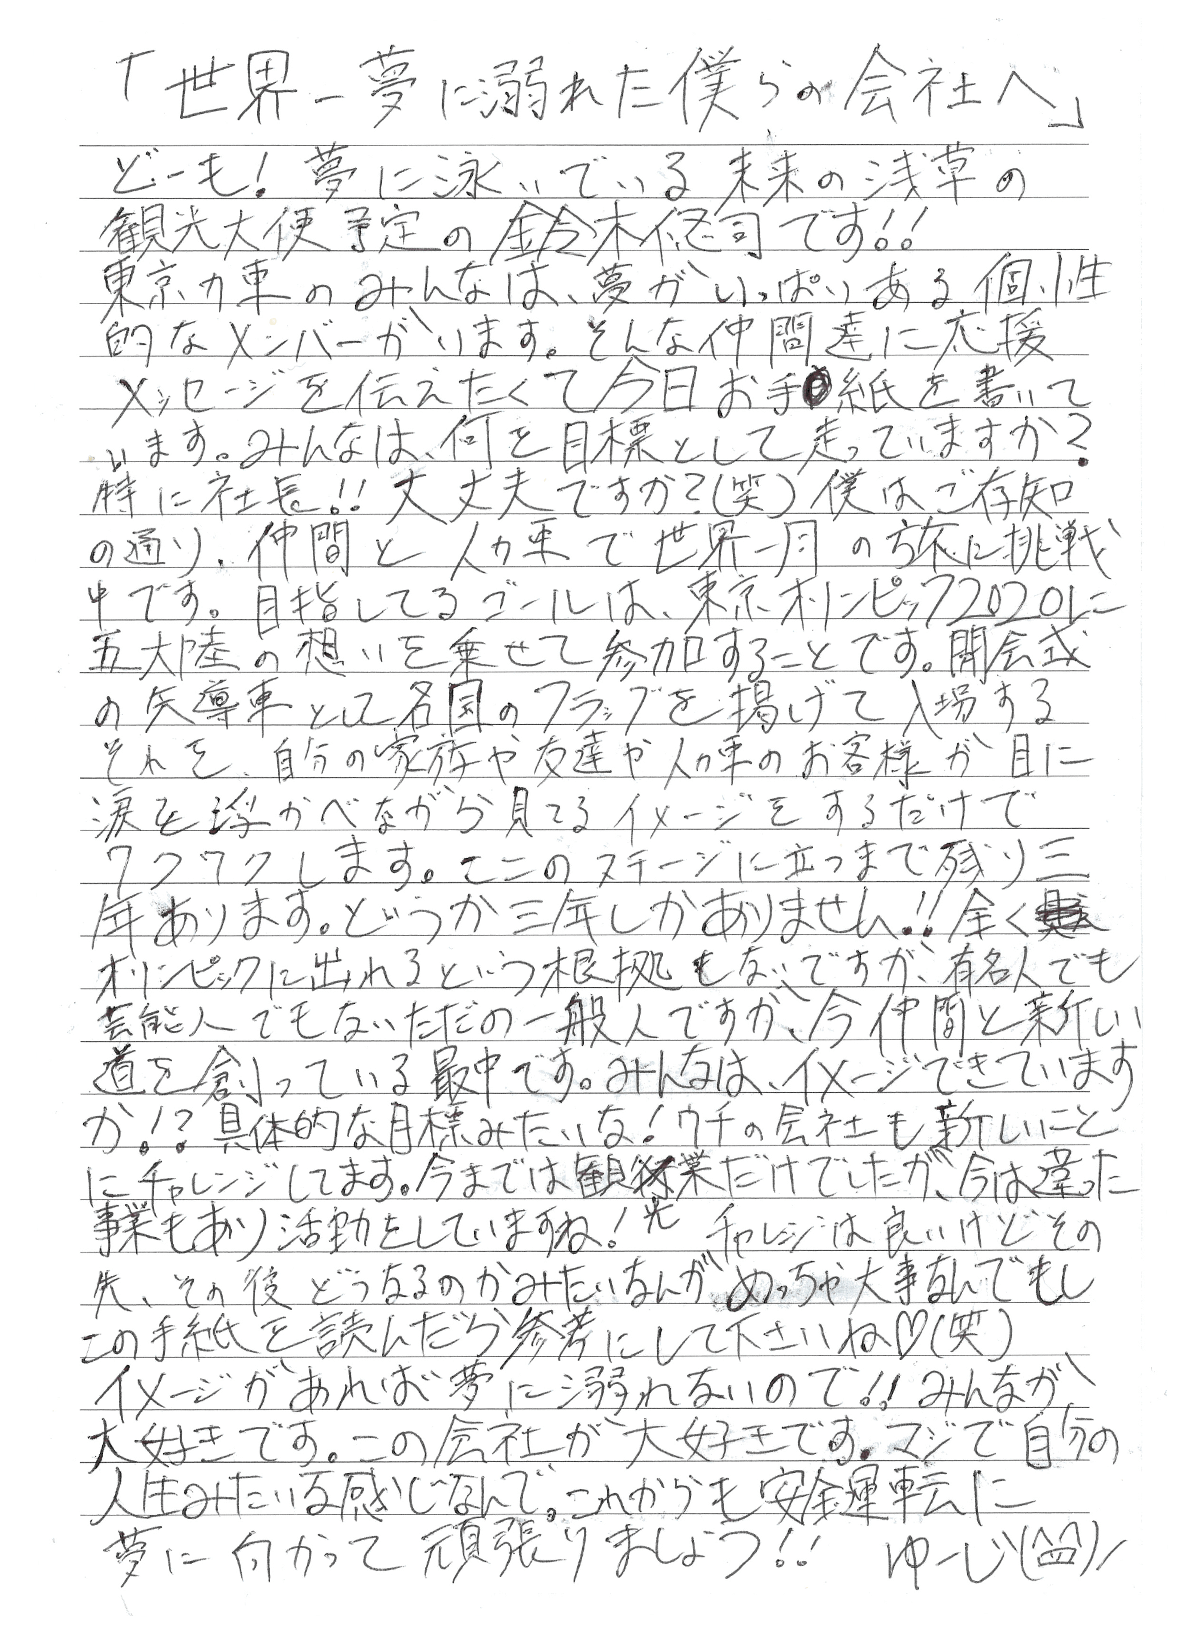 「世界一夢に溺れた僕らの会社へ」
どーも!夢に泳いでいる未来の浅草の
観光大使予定の鈴木悠司です!!
東京力車のみんなは、夢がいっぱいある個性
的なメンバーがいます。そんな仲間達に応援
メッセージを伝えたくて今日お手紙を書いて
います。みんなは、何を目標として走っていますか?
特に社長!!大丈夫ですか?(笑)僕はご存知
の通り、仲間と人力車で世界一周の旅に挑戦
中です。目指してるゴールは、東京オリンピック2020に
五大陸の想いを乗せて参加することです。開会式
の先導車として各国のフラッグを掲げて入場する
それを、自分の家族や友達や人力車のお客様が目に
涙を浮かべながら見てるイメージをするだけで
ワクワクします。ここのステージに立つまで残り三
年あります。どうか三年しかありません!!全く
オリンピックに出れるという根拠もないですが、有名人でも
芸能人でもないただの一般人ですが、今仲間と新しい
道を創っている最中です。みんなは、イメージできています
か!?具体的な目標みたいな!ウチの会社も新しいこと
にチャレンジしてます。今までは観光業だけでしたが、今は違った
事業もあり活動をしていますね!チャレンジは良いけどその
先、その後どうなるのかみたいなんがめっちゃ大事なんでもし
この手紙を読んだら参考にして下さいね♡(笑)
イメージがあれば夢に溺れないので!!みんなが、
大好きです。この会社が大好きです。マジで自分の
人生みたいな感じなんで。これからも安全運転に
夢に向かって頑張りましょう!! ゆーじ(^皿^)ノ